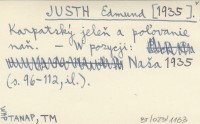 JUSTH Edmund [1935].
Karpatský jeleň a poľovanie
naň. – W pozycji:
Naša 1935
(s. 96-112, il.).
TANAP, TM